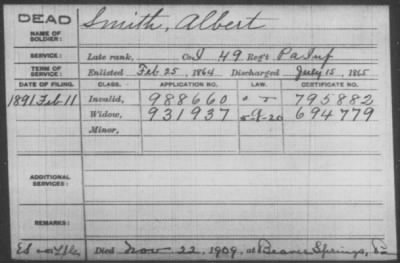 DEAD
NAME OF SOLDIER: Smith, Albert
SERVICE: Late rank, Co. I 49 Reg't Pa Inf
TERM OF SERVICE: Enlisted Feb 25, 1864 Discharged July 15, 1865
DATE OF FILING. CLASS. APPLICATION NO. LAW. CERTIFICATE NO.
1891 Feb 11 Invalid, 988660 795882
Widow, 931937 5-1-20 694779
Minor,
ADDITIONAL SERVICES:
REMARKS:
Died Nov 22, 1909, at Beaver Springs, Pa